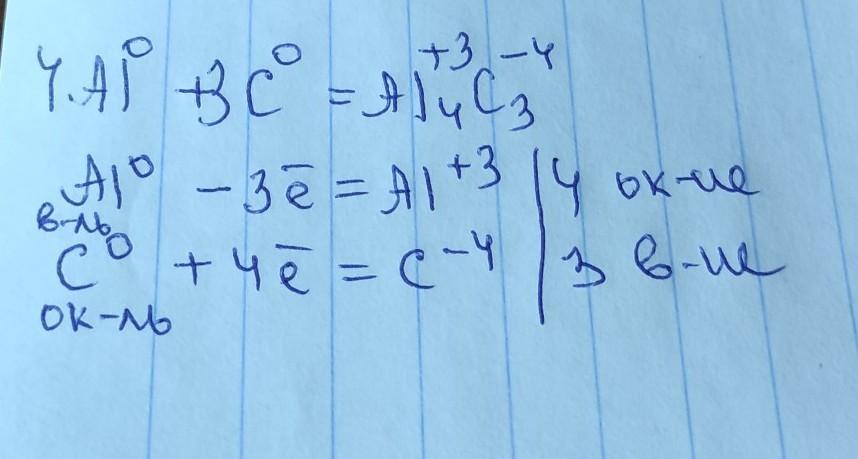 4Al⁰ + 3C⁰ = Al₄⁺³C₃⁻⁴
Al⁰ - 3ē = Al⁺³ | 4 ок-ие
в-ль
C⁰ + 4ē = C⁻⁴ | 3 в-ие
ок-ль